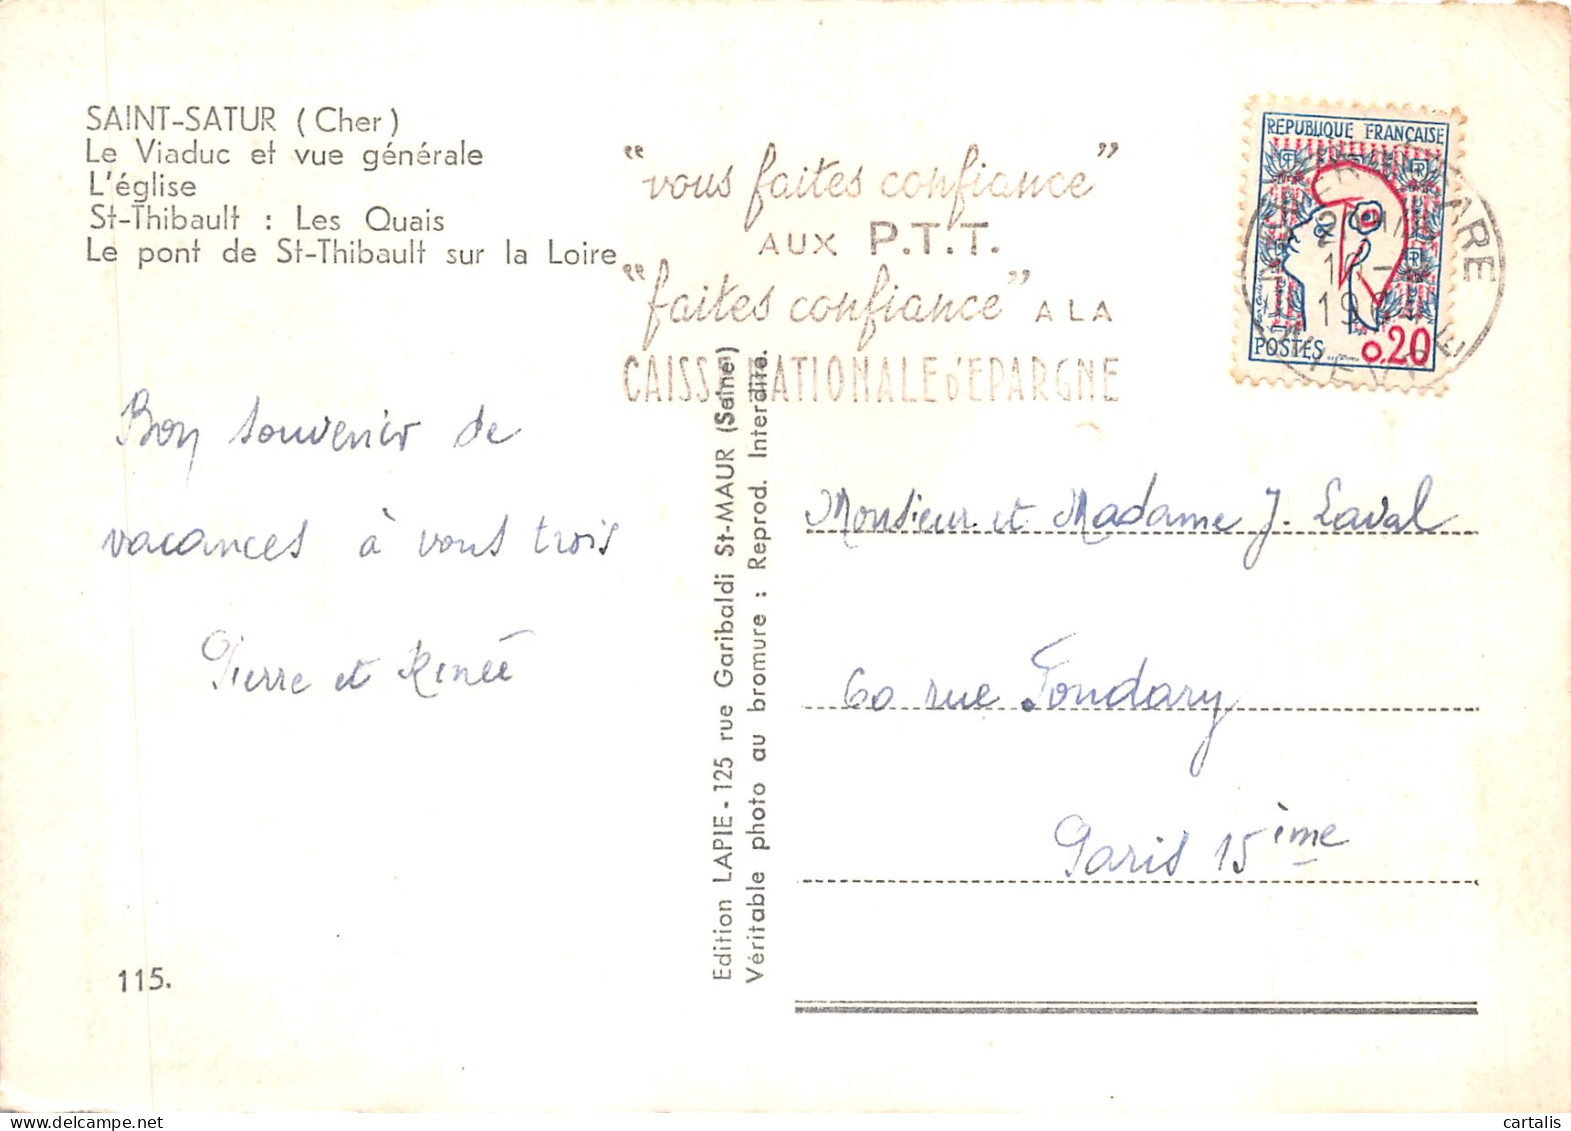 SAINT-SATUR (Cher)
Le Viaduc et vue générale
L'église
St-Thibault : Les Quais
Le pont de St-Thibault sur la Loire
"vous faites confiance"
AUX P.T.T.
"faites confiance" A LA
CAISSE NATIONALE D'EPARGNE
REPUBLIQUE FRANÇAISE
POSTES
0,20
Bon souvenir de
vacances à vous trois
Pierre et Renée
115.
Edition LAPIE - 125 rue Garibaldi St-MAUR (Seine)
Véritable photo au bromure : Reprod. Interdite.
Monsieur et Madame J. Laval
60 rue Fondary
Paris 15ème
cartalis